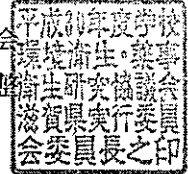 平成30年度学校
環境衛生・薬事
衛生研究協議会
滋賀県実行委員
会委員長之印
会